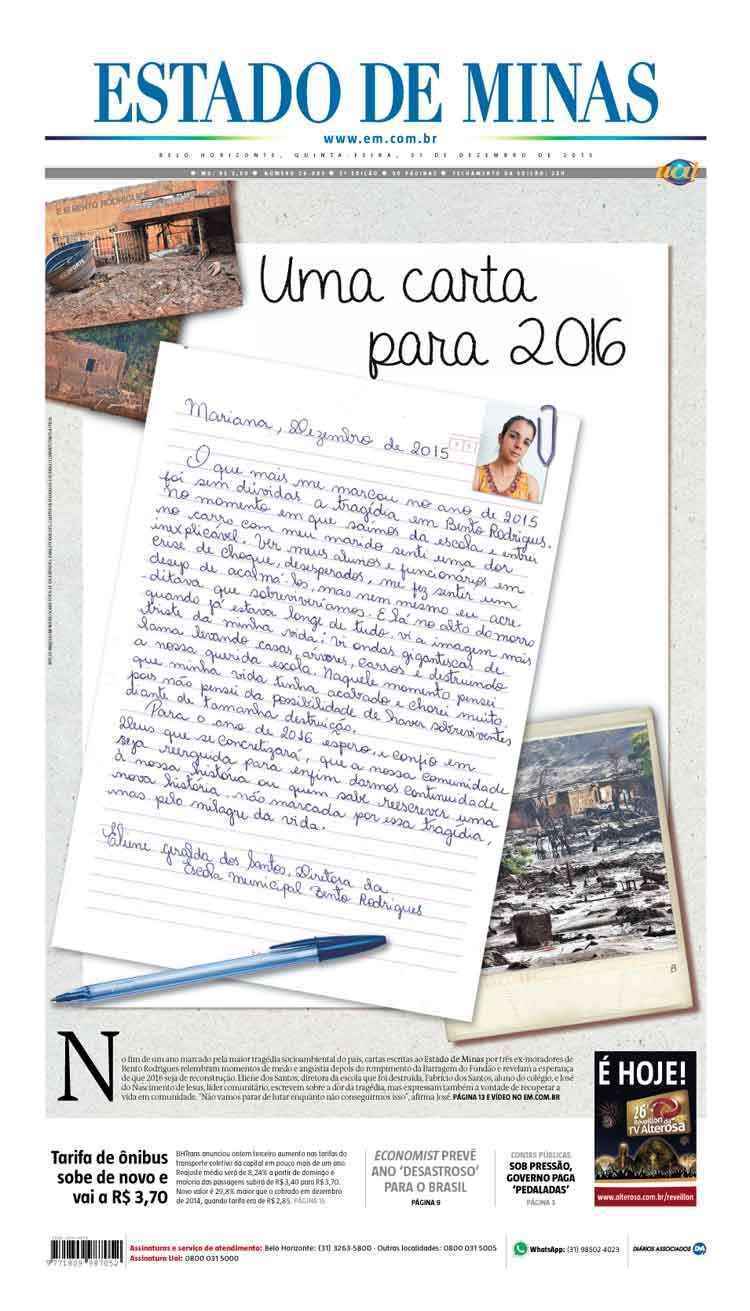 ESTADO DE MINAS
www.em.com.br
BELO HORIZONTE, QUINTA-FEIRA, 31 DE DEZEMBRO DE 2015
● MG: R$ 2,50 ● NÚMERO ● 2ª EDIÇÃO ● 50 PÁGINAS ● FECHAMENTO DA EDIÇÃO: 22H
uai
E M BENTO RODRIGUES
Uma carta
para 2016
Mariana, Dezembro de 2015
O que mais me marcou no ano de 2015
foi sem dúvidas a tragédia em Bento Rodrigues.
No momento em que saímos da escola e entrei
no carro com meu marido senti uma dor
inexplicável. Ver meus alunos e funcionários em
crise de choque, desesperados, me fez sentir um
desejo de acalmá-los, mas nem mesmo eu acre-
ditava que sobreviveríamos. E lá no alto do morro
quando já estava longe de tudo vi a imagem mais
triste da minha vida: vi ondas gigantescas de
lama levando casas, árvores, carros e destruindo
a nossa querida escola. Naquele momento pensei
que minha vida tinha acabado e chorei muito,
pois não pensei da possibilidade de haver sobreviventes
diante de tamanha destruição.
Para o ano de 2016 espero, e confio em
Deus que se concretizará, que a nossa comunidade
seja reerguida para enfim darmos continuidade
à nossa história ou quem sabe reescrever uma
nova história, não marcada por essa tragédia,
mas pelo milagre da vida.
Eliene Geralda dos Santos. Diretora da
Escola Municipal Bento Rodrigues
No fim de um ano marcado pela maior tragédia socioambiental do país, cartas escritas ao Estado de Minas por três ex-moradores de
Bento Rodrigues relembram momentos de medo e angústia depois do rompimento da Barragem do Fundão e revelam a esperança
de que 2016 seja de reconstrução. Eliene dos Santos, diretora da escola que foi destruída, Fabrício dos Santos, aluno do colégio, e José
do Nascimento de Jesus, líder comunitário, escrevem sobre a dor da tragédia, mas expressam também a vontade de recuperar a
vida em comunidade. "Não vamos parar de lutar enquanto não conseguirmos isso", afirma José. PÁGINA 13 E VÍDEO NO EM.COM.BR
É HOJE!
26º
Réveillon da
TV Alterosa
www.alterosa.com.br/reveillon
Tarifa de ônibus
sobe de novo e
vai a R$ 3,70
BHTrans anunciou ontem terceiro aumento nas tarifas do
transporte coletivo da capital em pouco mais de um ano.
Reajuste médio será de 8,24% a partir de domingo e
maioria das passagens subirá de R$ 3,40 para R$ 3,70.
Novo valor é 29,8% maior que o cobrado em dezembro
de 2014, quando tarifa era de R$ 2,85. PÁGINA 15
ECONOMIST PREVÊ
ANO 'DESASTROSO'
PARA O BRASIL
PÁGINA 9
CONTAS PÚBLICAS
SOB PRESSÃO,
GOVERNO PAGA
'PEDALADAS'
PÁGINA 3
9 771809 987052
Assinaturas e serviço de atendimento: Belo Horizonte: (31) 3263-5800 - Outras localidades: 0800 031 5005
Assinatura Uai: 0800 031 5000
WhatsApp: (31) 98502-4023
DIÁRIOS ASSOCIADOS DA